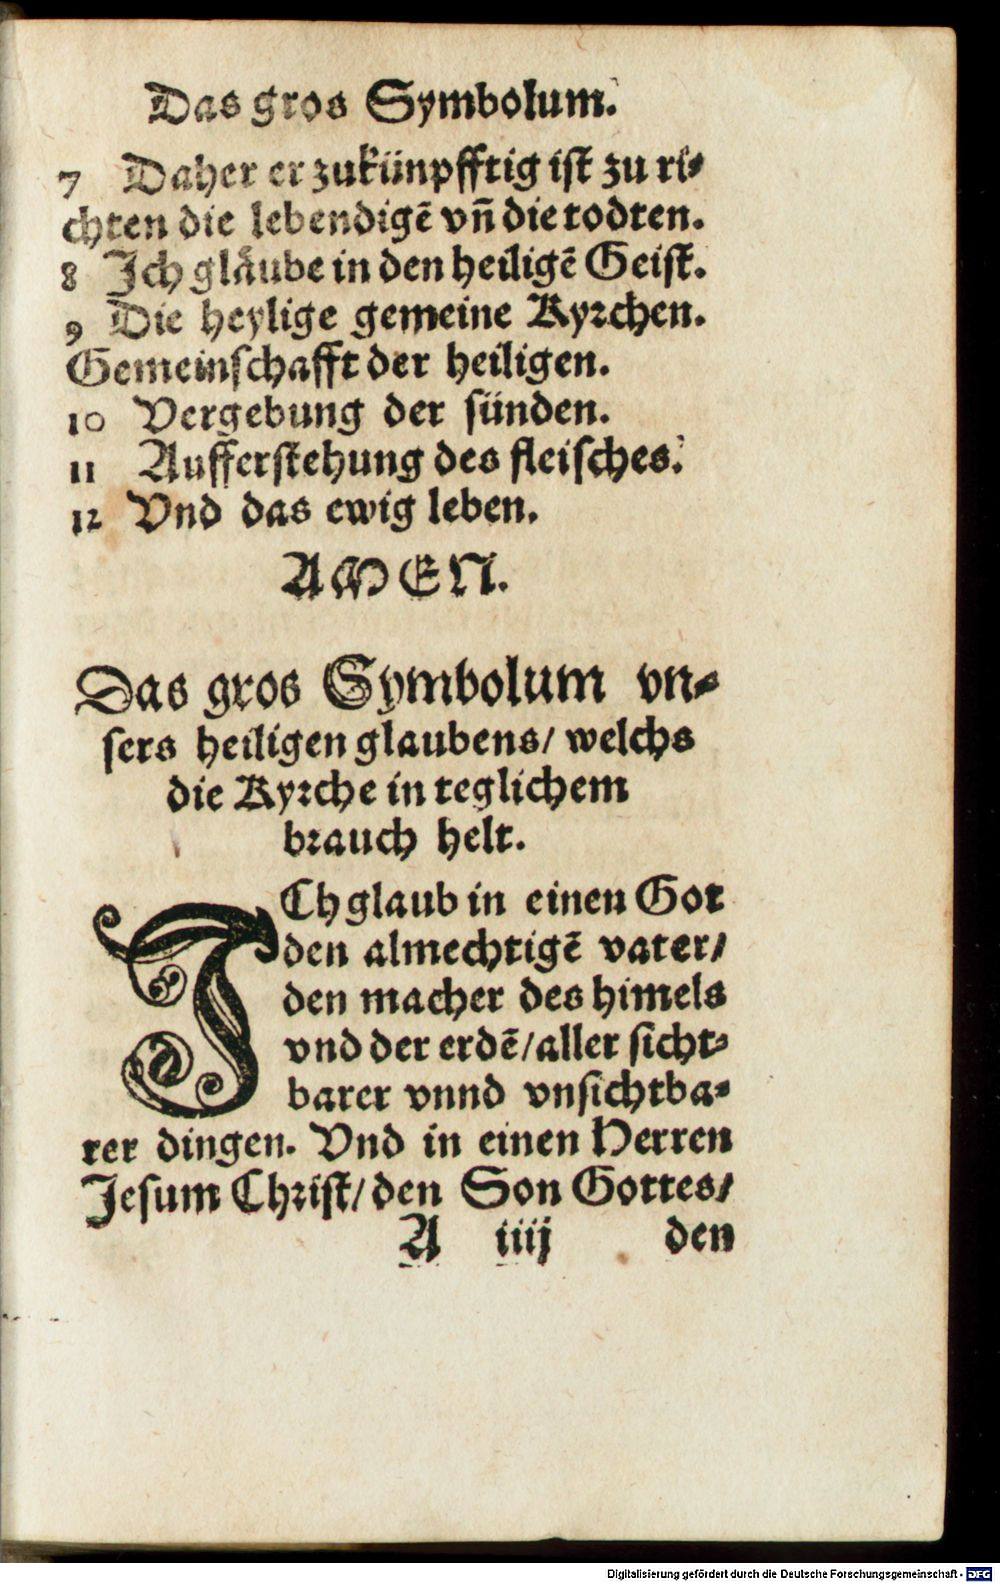 Das gros Symbolum.
7 Daher er zukünpfftig ist zu ri-
chten die lebendigē vñ die todten.
8 Ich glåube in den heiligē Geist.
9 Die heylige gemeine Kyrchen.
Gemeinschafft der heiligen.
10 Vergebung der sünden.
11 Aufferstehung des fleisches.
12 Vnd das ewig leben.
AMEN.
Das gros Symbolum vn-
sers heiligen glaubens/ welchs
die Kyrche in teglichem
brauch helt.
ICh glaub in einen Got
den almechtigē vater/
den macher des himels
vnd der erdē/aller sicht-
barer vnnd vnsichtba-
rer dingen. Vnd in einen Herren
Jesum Christ/den Son Gottes/
A iiij den
Digitalisierung gefördert durch die Deutsche Forschungsgemeinschaft - DFG